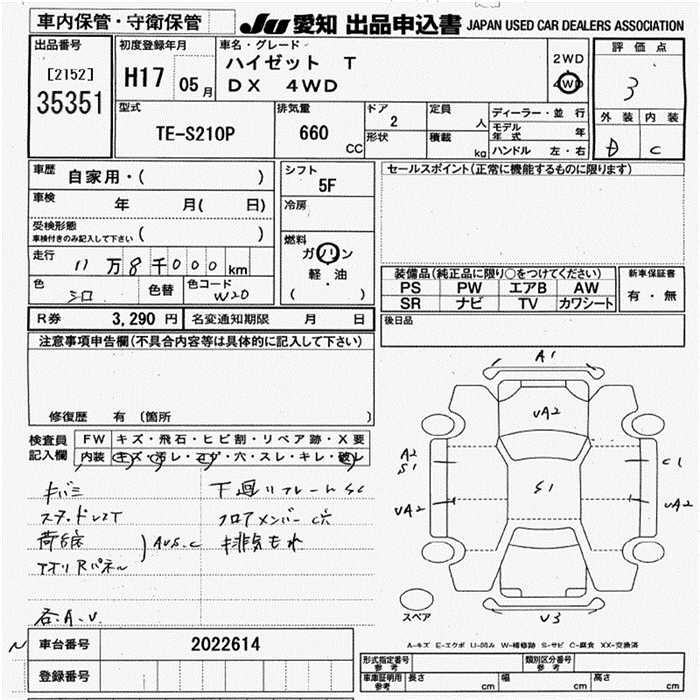 車内保管・守衛保管
JU 愛知 出品申込書 JAPAN USED CAR DEALERS ASSOCIATION
出品番号
[2152]
35351
初度登録年月
H17 05月
車名・グレード
ハイゼット T
DX 4WD
2WD
4WD
評価点
3
外装 内装
D C
型式
TE-S210P
排気量
660 CC
ドア
2
形状
定員
人
積載
kg
ディーラー・並行
モデル年式 年
ハンドル 左・右
車歴 自家用・( )
車検 年 月( 日)
受検形態
車検付きのみ記入して下さい ( )
走行 11万8千000km
色 シロ
色替
色コード W20
シフト
5F
冷房
燃料
ガソリン
軽・油
( )
セールスポイント(正常に機能するものに限ります)
装備品(純正品に限り○をつけてください)
PS PW エアB AW
SR ナビ TV カワシート
新車保証書
有・無
R券 3,290円 名変通知期限 月 日
後日品
注意事項申告欄(不具合内容等は具体的に記入して下さい)
修復歴 有 (箇所 )
検査員記入欄
FW キズ・飛石・ヒビ割・リペア跡・X要
内装 キズ・汚レ・コゲ・穴・スレ・キレ・破レ
キバミ
スタッドレスT
荷台錆
アオリRパネル
AUS.C
各.A.U.
下廻りフレームSC
フロアメンバーC穴
排気モレ
A1
UA2
A2
S1
UA2
S1
C1
UA2
U3
スペア
A-キズ E-エクボ U-凹み W-補修跡 S-サビ C-腐食 XX-交換済
車台番号 2022614
登録番号
形式指定番号 参考
類別区分番号 参考
車庫証明用 参考 長さ cm 幅 cm 高さ cm